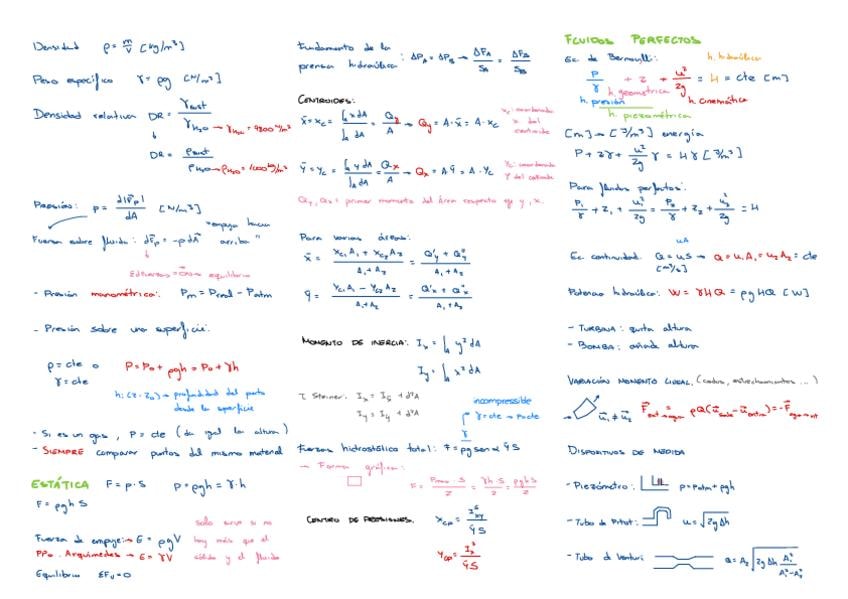 Densidad ρ = m/V [kg/m³]
Peso específico γ = ρg [N/m³]
Densidad relativa DR = γsust/γH₂O → γH₂O = 9800 N/m³
DR = ρsust/ρH₂O → ρH₂O = 1000 kg/m³
PRESIÓN: p = d|F⃗p|/dA [N/m²]
"empuja hacia arriba"
Fuerza sobre fluido: dF⃗p = -p dA⃗
equilibrio
- Presión manométrica: Pm = Preal - Patm
- Presión sobre una superficie:
ρ = cte o γ = cte
P = P₀ + ρgh = P₀ + γh
h: (z - z₀) → profundidad del punto
desde la superficie
- Si es un gas, P = cte (da igual la altura)
- SIEMPRE comparar puntos del mismo material
ESTÁTICA F = p·S p = ρgh = γ·h
F = ρgh S
Fuerza de empuje → E = ρgV
PPo. Arquímedes → E = γV
solo sirve si no
hay más que el
sólido y el fluido
Equilibrio ΣFv = 0
Fundamento de la
prensa hidráulica: ΔPA = ΔPB → ΔFA/SA = ΔFB/SB
CENTROIDES:
x̄ = xc = ∫A x dA / ∫A dA = Qy/A → Qy = A·x̄ = A·xc
xc: coordenada
x del
centroide
ȳ = yc = ∫A y dA / ∫A dA = Qx/A → Qx = A·ȳ = A·yc
yc: coordenada
y del centroide
Qy, Qx = primer momento del área respecto eje y, x.
Para varias áreas:
x̄ = (xc₁A₁ + xc₂A₂)/(A₁+A₂) = (Q'y + Q''y)/(A₁+A₂)
ȳ = (yc₁A₁ - yc₂A₂)/(A₁+A₂) = (Q'x + Q''x)/(A₁+A₂)
MOMENTO DE INERCIA: Ix = ∫A y² dA
Iy = ∫A x² dA
T. Steiner: Ix = Ix̄ + d²A
Iy = Iȳ + d²A
incompresible
γ = cte → ρ = cte
Fuerza hidrostática total: F = ρg senα ȳS
→ Forma gráfica:
F = Pmax·S/2 = γh·S/2 = ρghS/2
CENTRO DE PRESIONES.
ycp = /ȳS
FLUIDOS PERFECTOS
Ec. de Bernoulli: h. hidráulica
P/γ + z + u²/2g = H = cte [m]
h. geométrica
h. presión
h. cinemática
h. piezométrica
[m] → [J/m³] energía
P + zγ + u²/2g γ = Hγ [J/m³]
Para fluidos perfectos:
P₁/γ + z₁ + u₁²/2g = P₂/γ + z₂ + u₂²/2g = H
uA
Ec. continuidad. Q = uS → Q = u₁A₁ = u₂A₂ = cte
[m³/s]
Potencia hidráulica: W = γHQ = ρgHQ [W]
- TURBINA: quita altura
- BOMBA: añade altura
VARIACIÓN MOMENTO LINEAL. (codos, estrechamientos ...)
u⃗₁ ≠ u⃗₂ = ρQ(u⃗sale - u⃗entra) =
DISPOSITIVOS DE MEDIDA
- Piezómetro: p = patm + ρgh
- Tubo de Pitot: u = √2gΔh
- Tubo de Venturi Q = A₂ √(2gΔh A₁²/(A₁²-A₂²))